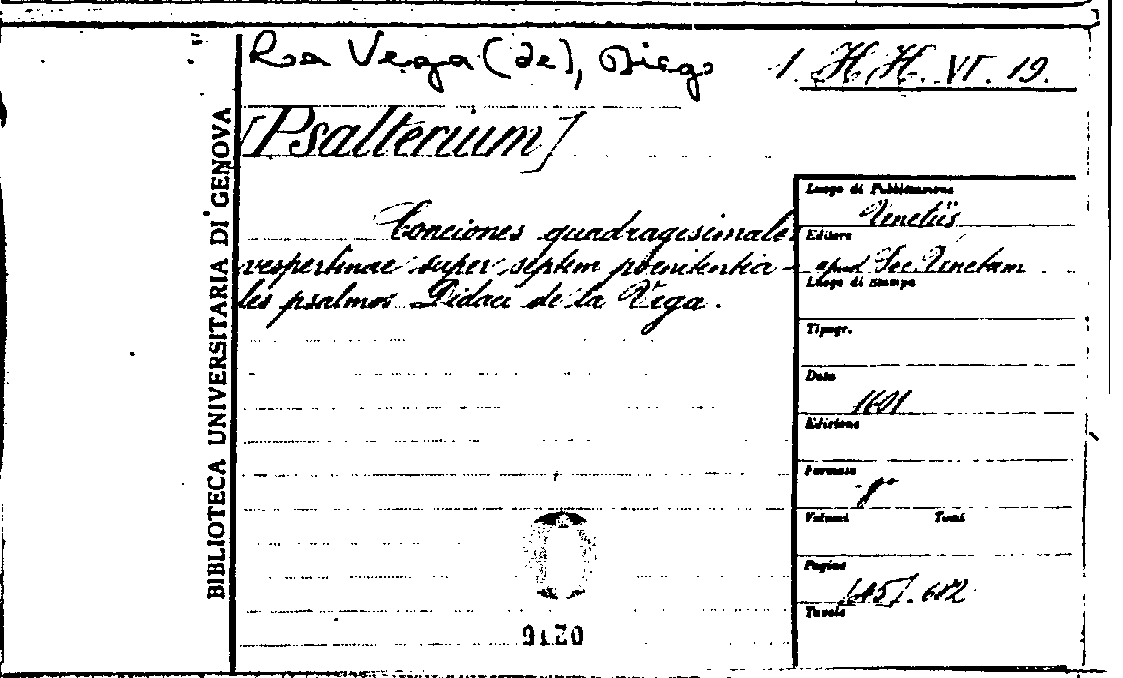 La Vega (de), Diego
1. H.H. VI. 19.
[Psalterium]
BIBLIOTECA UNIVERSITARIA DI GENOVA
Conciones quadragesimales
vespertinae super septem poenitentia-
les psalmos Didaci de la Vega.
Luogo di Pubblicazione
Venetiis
Editore
apud Soc. Venetam
Luogo di stampa
Tipogr.
Data
1601
Edizione
Formato
8°
Volumi Tomi
Pagine
[45]. 612
Tavole